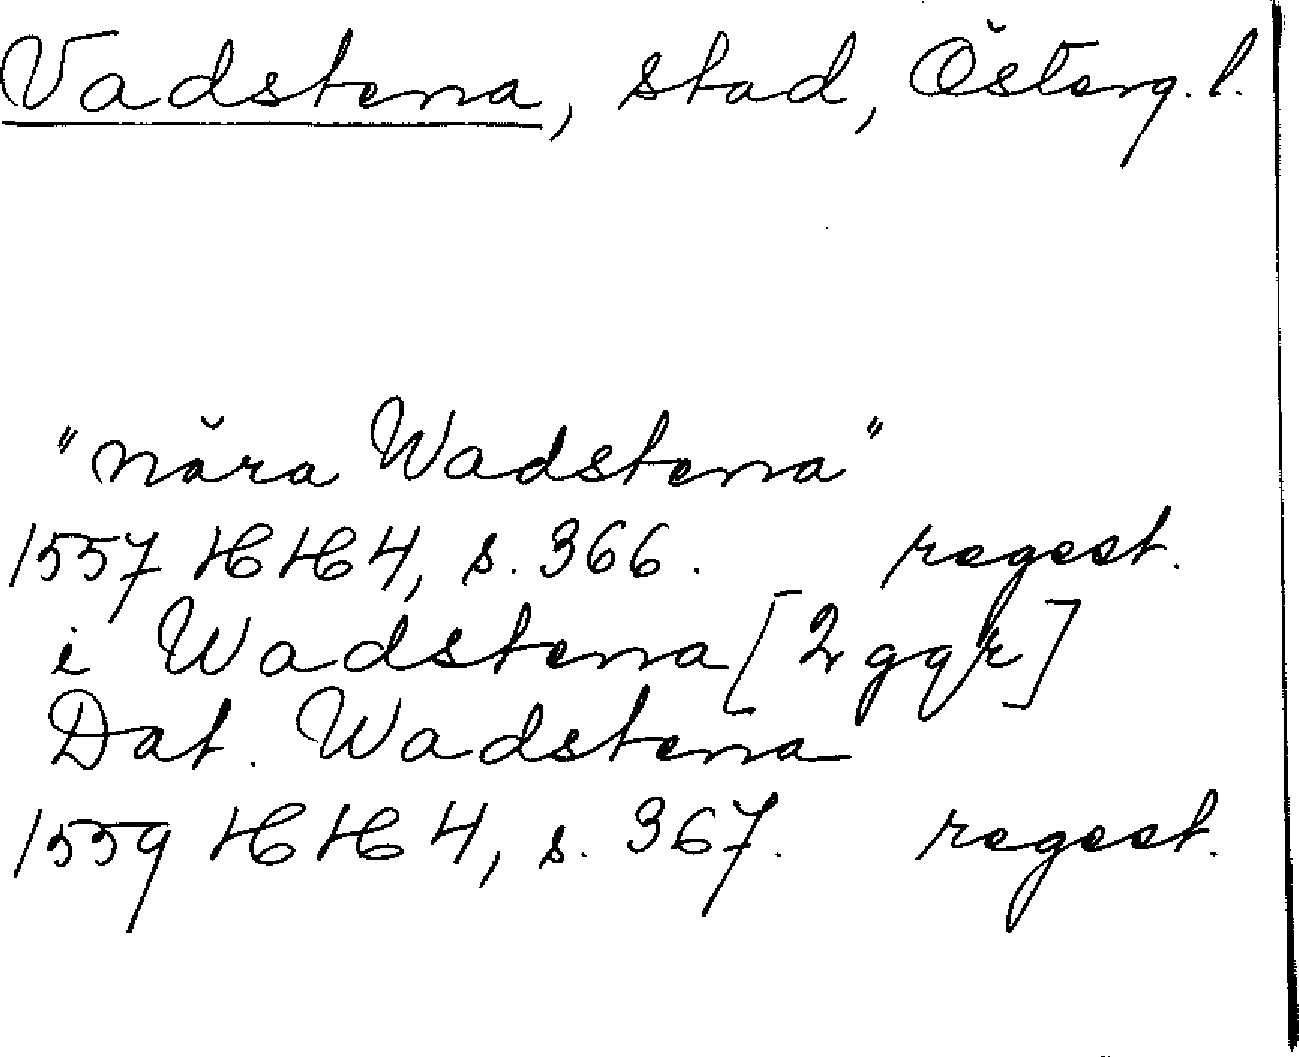 Vadstena, stad, Österg. l.
"nära Wadstena"
1557 HH 4, s. 366. regest.
i Wadstena [2 ggr]
Dat. Wadstena
1559 HH 4, s. 367. regest.